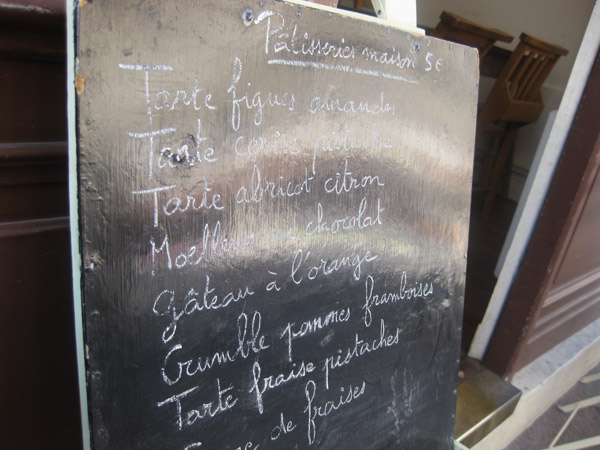 Pâtisseries maison 5€
Tarte figues amandes
Tarte cerise pistache
Tarte abricot citron
Moelleux au chocolat
Gâteau à l'orange
Crumble pommes framboises
Tarte fraise pistaches
de fraises